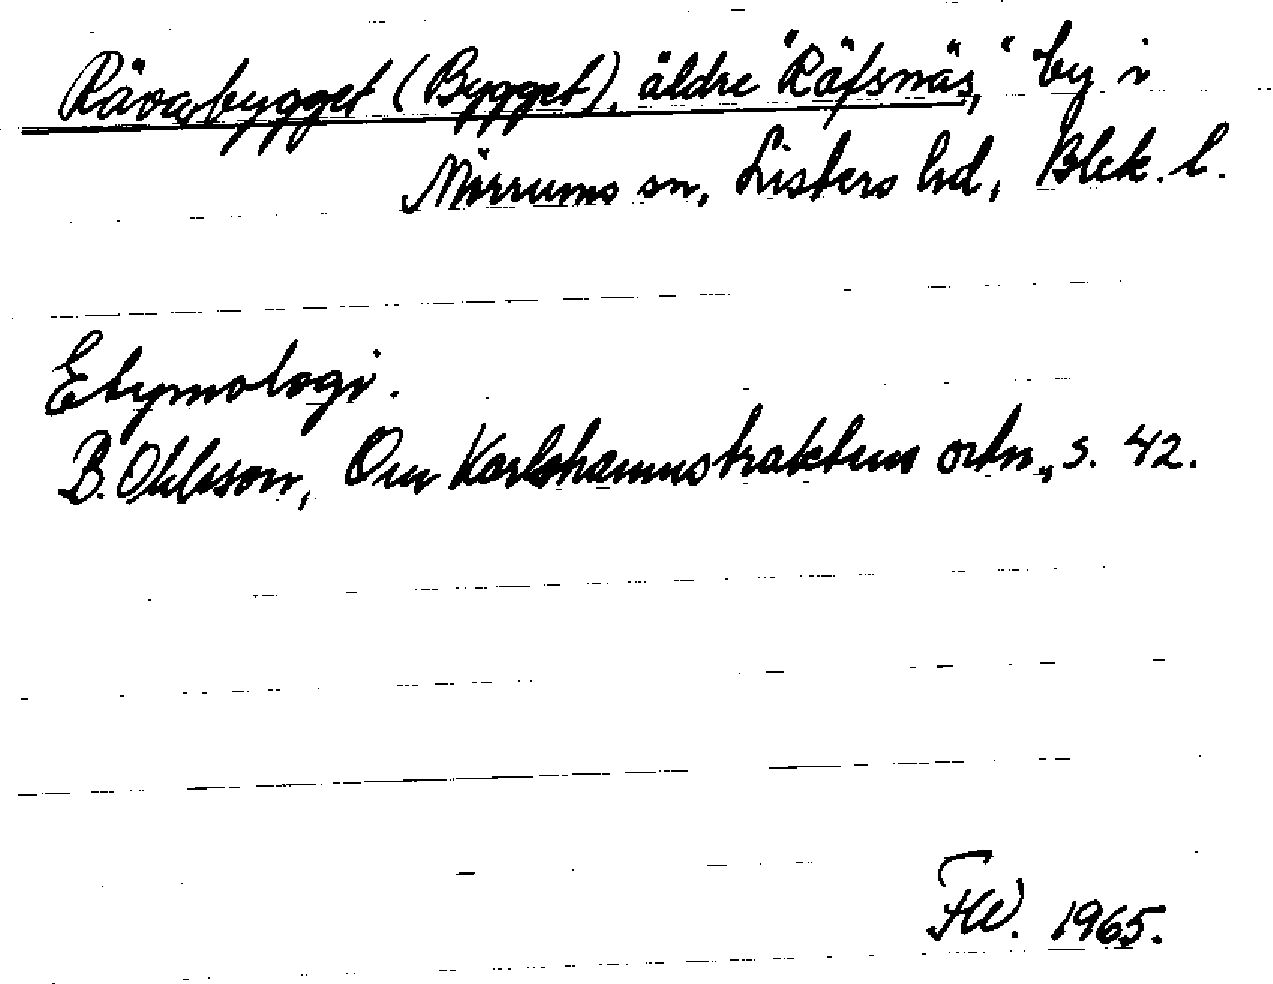 Rävabygget (Bygget), äldre "Räfsnäs," by i
Mörrums sn, Listers hd, Blek. l.
Etymologi.
B. Ohlsson, Om Karlshamnstraktens ortn., s. 42.
FW. 1965.